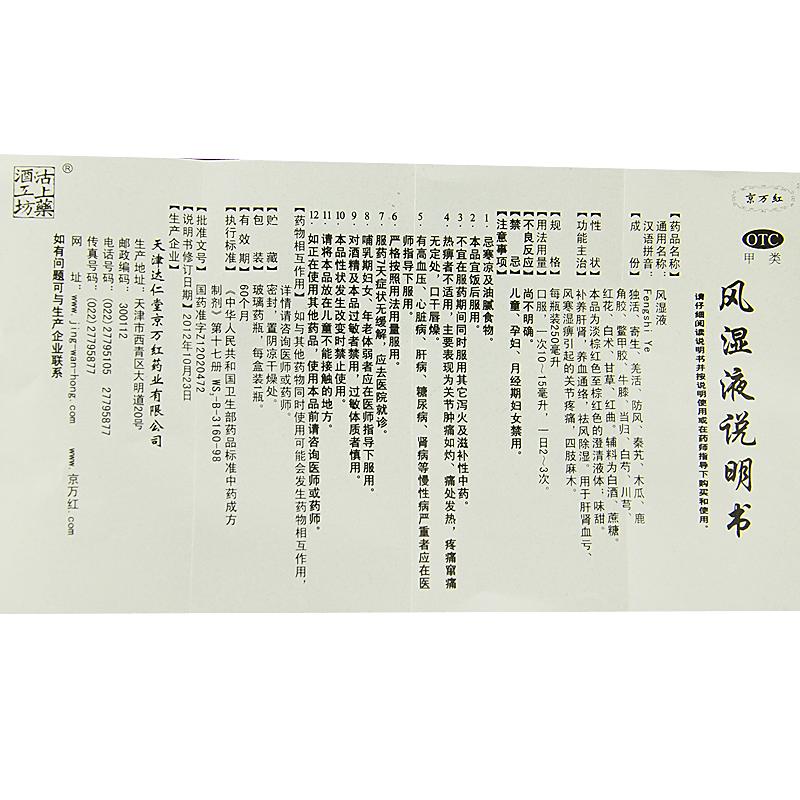 京万红
OTC
甲类
风湿液说明书
请仔细阅读说明书并按说明使用或在药师指导下购买和使用。
【药品名称】
通用名称：风湿液
汉语拼音：Fengshi Ye
【成　份】独活、寄生、羌活、防风、秦艽、木瓜、鹿
角胶、鳖甲胶、牛膝、当归、白芍、川芎、
红花、白术、甘草、红曲。辅料为白酒、蔗糖。
【性　状】本品为淡棕红色至棕红色的澄清液体；味甜。
【功能主治】补养肝肾，养血通络，祛风除湿。用于肝肾血亏、
风寒湿痹引起的关节疼痛，四肢麻木。
【规　格】每瓶装250毫升
【用法用量】口服，一次10~15毫升，一日2~3次。
【不良反应】尚不明确。
【禁　忌】儿童、孕妇、月经期妇女禁用。
【注意事项】
1．忌寒凉及油腻食物。
2．本品宜饭后服用。
3．不宜在服药期间同时服用其它泻火及滋补性中药。
4．热痹者不适用，主要表现为关节肿痛如灼、痛处发热，疼痛窜痛
无定处，口干唇燥。
5．有高血压、心脏病、肝病、糖尿病、肾病等慢性病严重者应在医
师指导下服用。
6．严格按照用法用量服用。
7．服药7天症状无缓解，应去医院就诊。
8．哺乳期妇女、年老体弱者应在医师指导下服用。
9．对酒精及本品过敏者禁用，过敏体质者慎用。
10．本品性状发生改变时禁止使用。
11．请将本品放在儿童不能接触的地方。
12．如正在使用其他药品，使用本品前请咨询医师或药师。
【药物相互作用】如与其他药物同时使用可能会发生药物相互作用，
详情请咨询医师或药师。
【贮　藏】密封，置阴凉干燥处。
【包　装】玻璃药瓶，每盒装一瓶。
【有 效 期】60个月
【执行标准】《中华人民共和国卫生部药品标准中药成方
制剂》第十七册 WS₃-B-3160-98
【批准文号】国药准字Z12020472
【说明书修订日期】2012年10月23日
【生产企业】
天津达仁堂京万红药业有限公司
生产地址：天津市西青区大明道20号
邮政编码：300112
电话号码：(022)27795105　27795877
传真号码：(022)27795877
网　址：www.jing-wan-hong.com　www.京万红.com
如有问题可与生产企业联系
沽上药
酒工坊
®